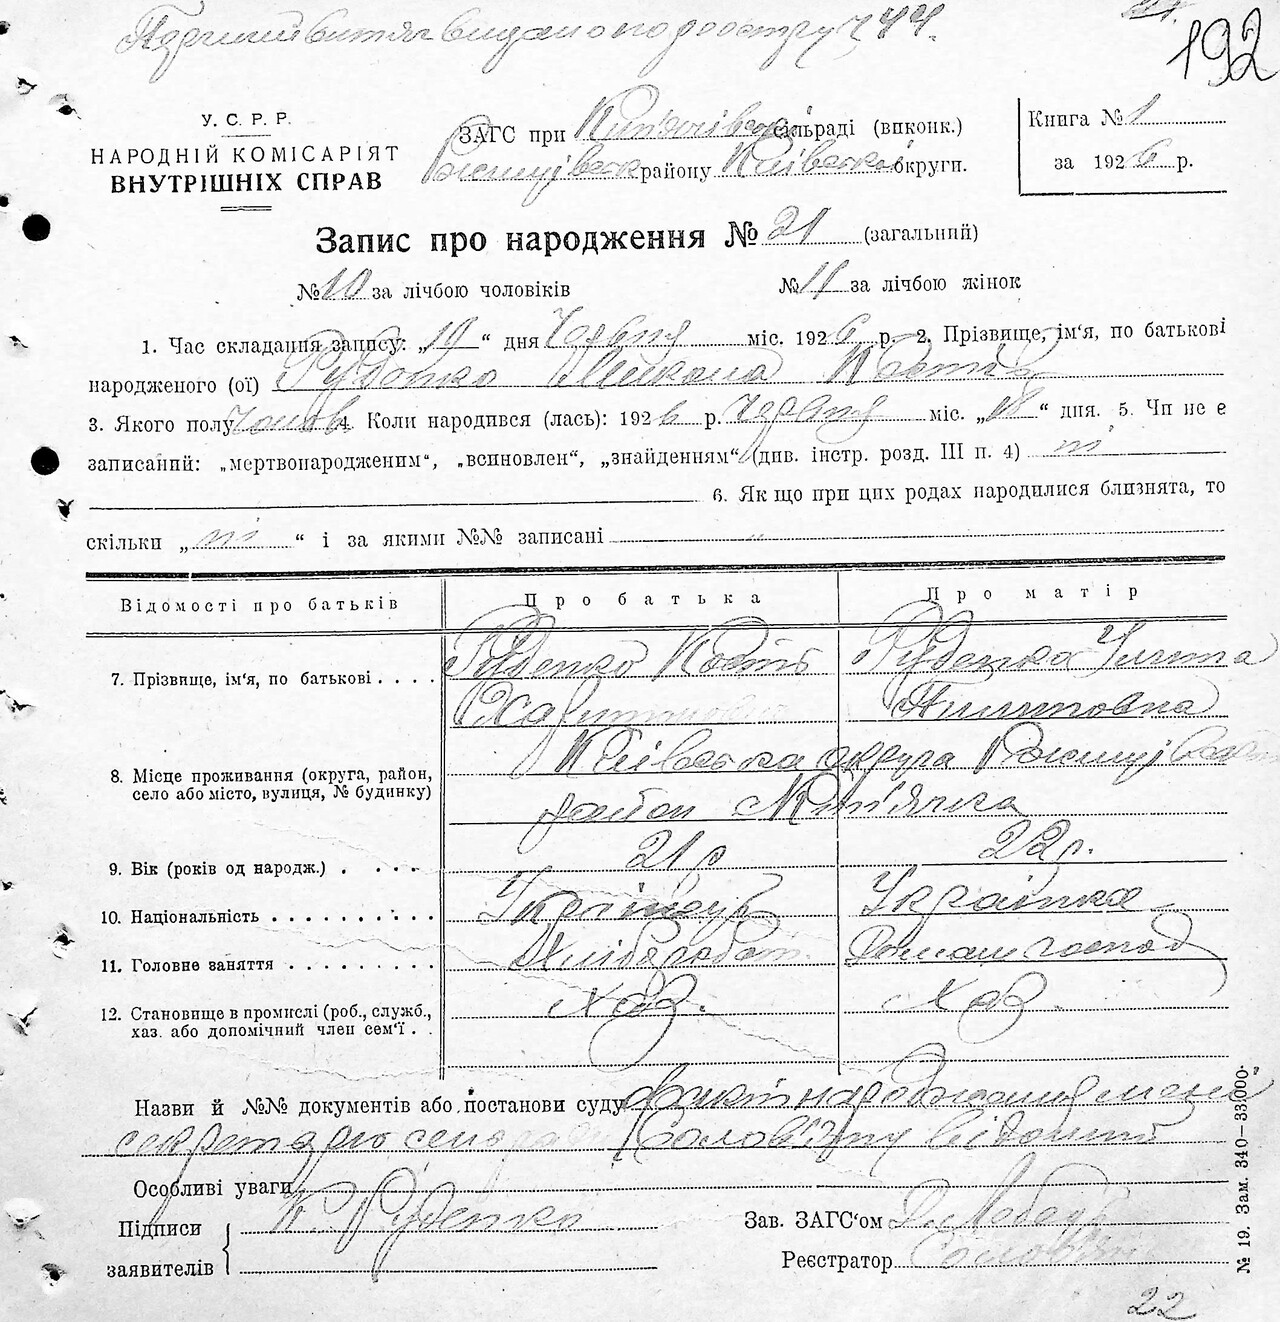 Перший витяг видано по реєстру Ч 44.
192
У. С. Р. Р.
НАРОДНІЙ КОМІСАРІЯТ
ВНУТРІШНІХ СПРАВ
ЗАГС при сільраді (виконк.)
району Київської округи.
Книга № 1
за 1926 р.
Запис про народження № 21 (загальний)
№ 10 за лічбою чоловіків № 11 за лічбою жінок
1. Час складання запису: „19“ дня Червня міс. 1926 р. 2. Прізвище, ім'я, по батькові
народженого (ої) Руденко Микола Костів
3. Якого полу Чолов 4. Коли народився (лась): 1926 р. Червня міс. „18“ дня. 5. Чи не є
записаний: „мертвонародженим“, „всиновлен“, „знайденням“ (див. інстр. розд. III п. 4) ні
6. Як що при цих родах народилися близнята, то
скільки „ні“ і за якими №№ записані "
Відомості про батьків Про батька Про матір
7. Прізвище, ім'я, по батькові . . . . Руденко Кость Руденко Улита
Харитонович Пилиповна
8. Місце проживання (округа, район, село або місто, вулиця, № будинку) Київська округа
район
9. Вік (років од народж.) . . . . . 21 р 22 р.
10. Національність . . . . . . . . . . Українець Українка
11. Головне заняття . . . . . . . . . Хлібороб Домаш господ
12. Становище в промислі (роб., служб., хаз. або допомічний член сем'ї . . Хаз. Хаз.
Назви й №№ документів або постанови суду факт народження мені
секретарю сельради Солов'яну відомий
Особливі уваги
Підписи заявителів К. Руденко
Зав. ЗАГС'ом Д. Лебедь
Реєстратор Солов'ян
№ 19. Зам. 340—33.000.
22